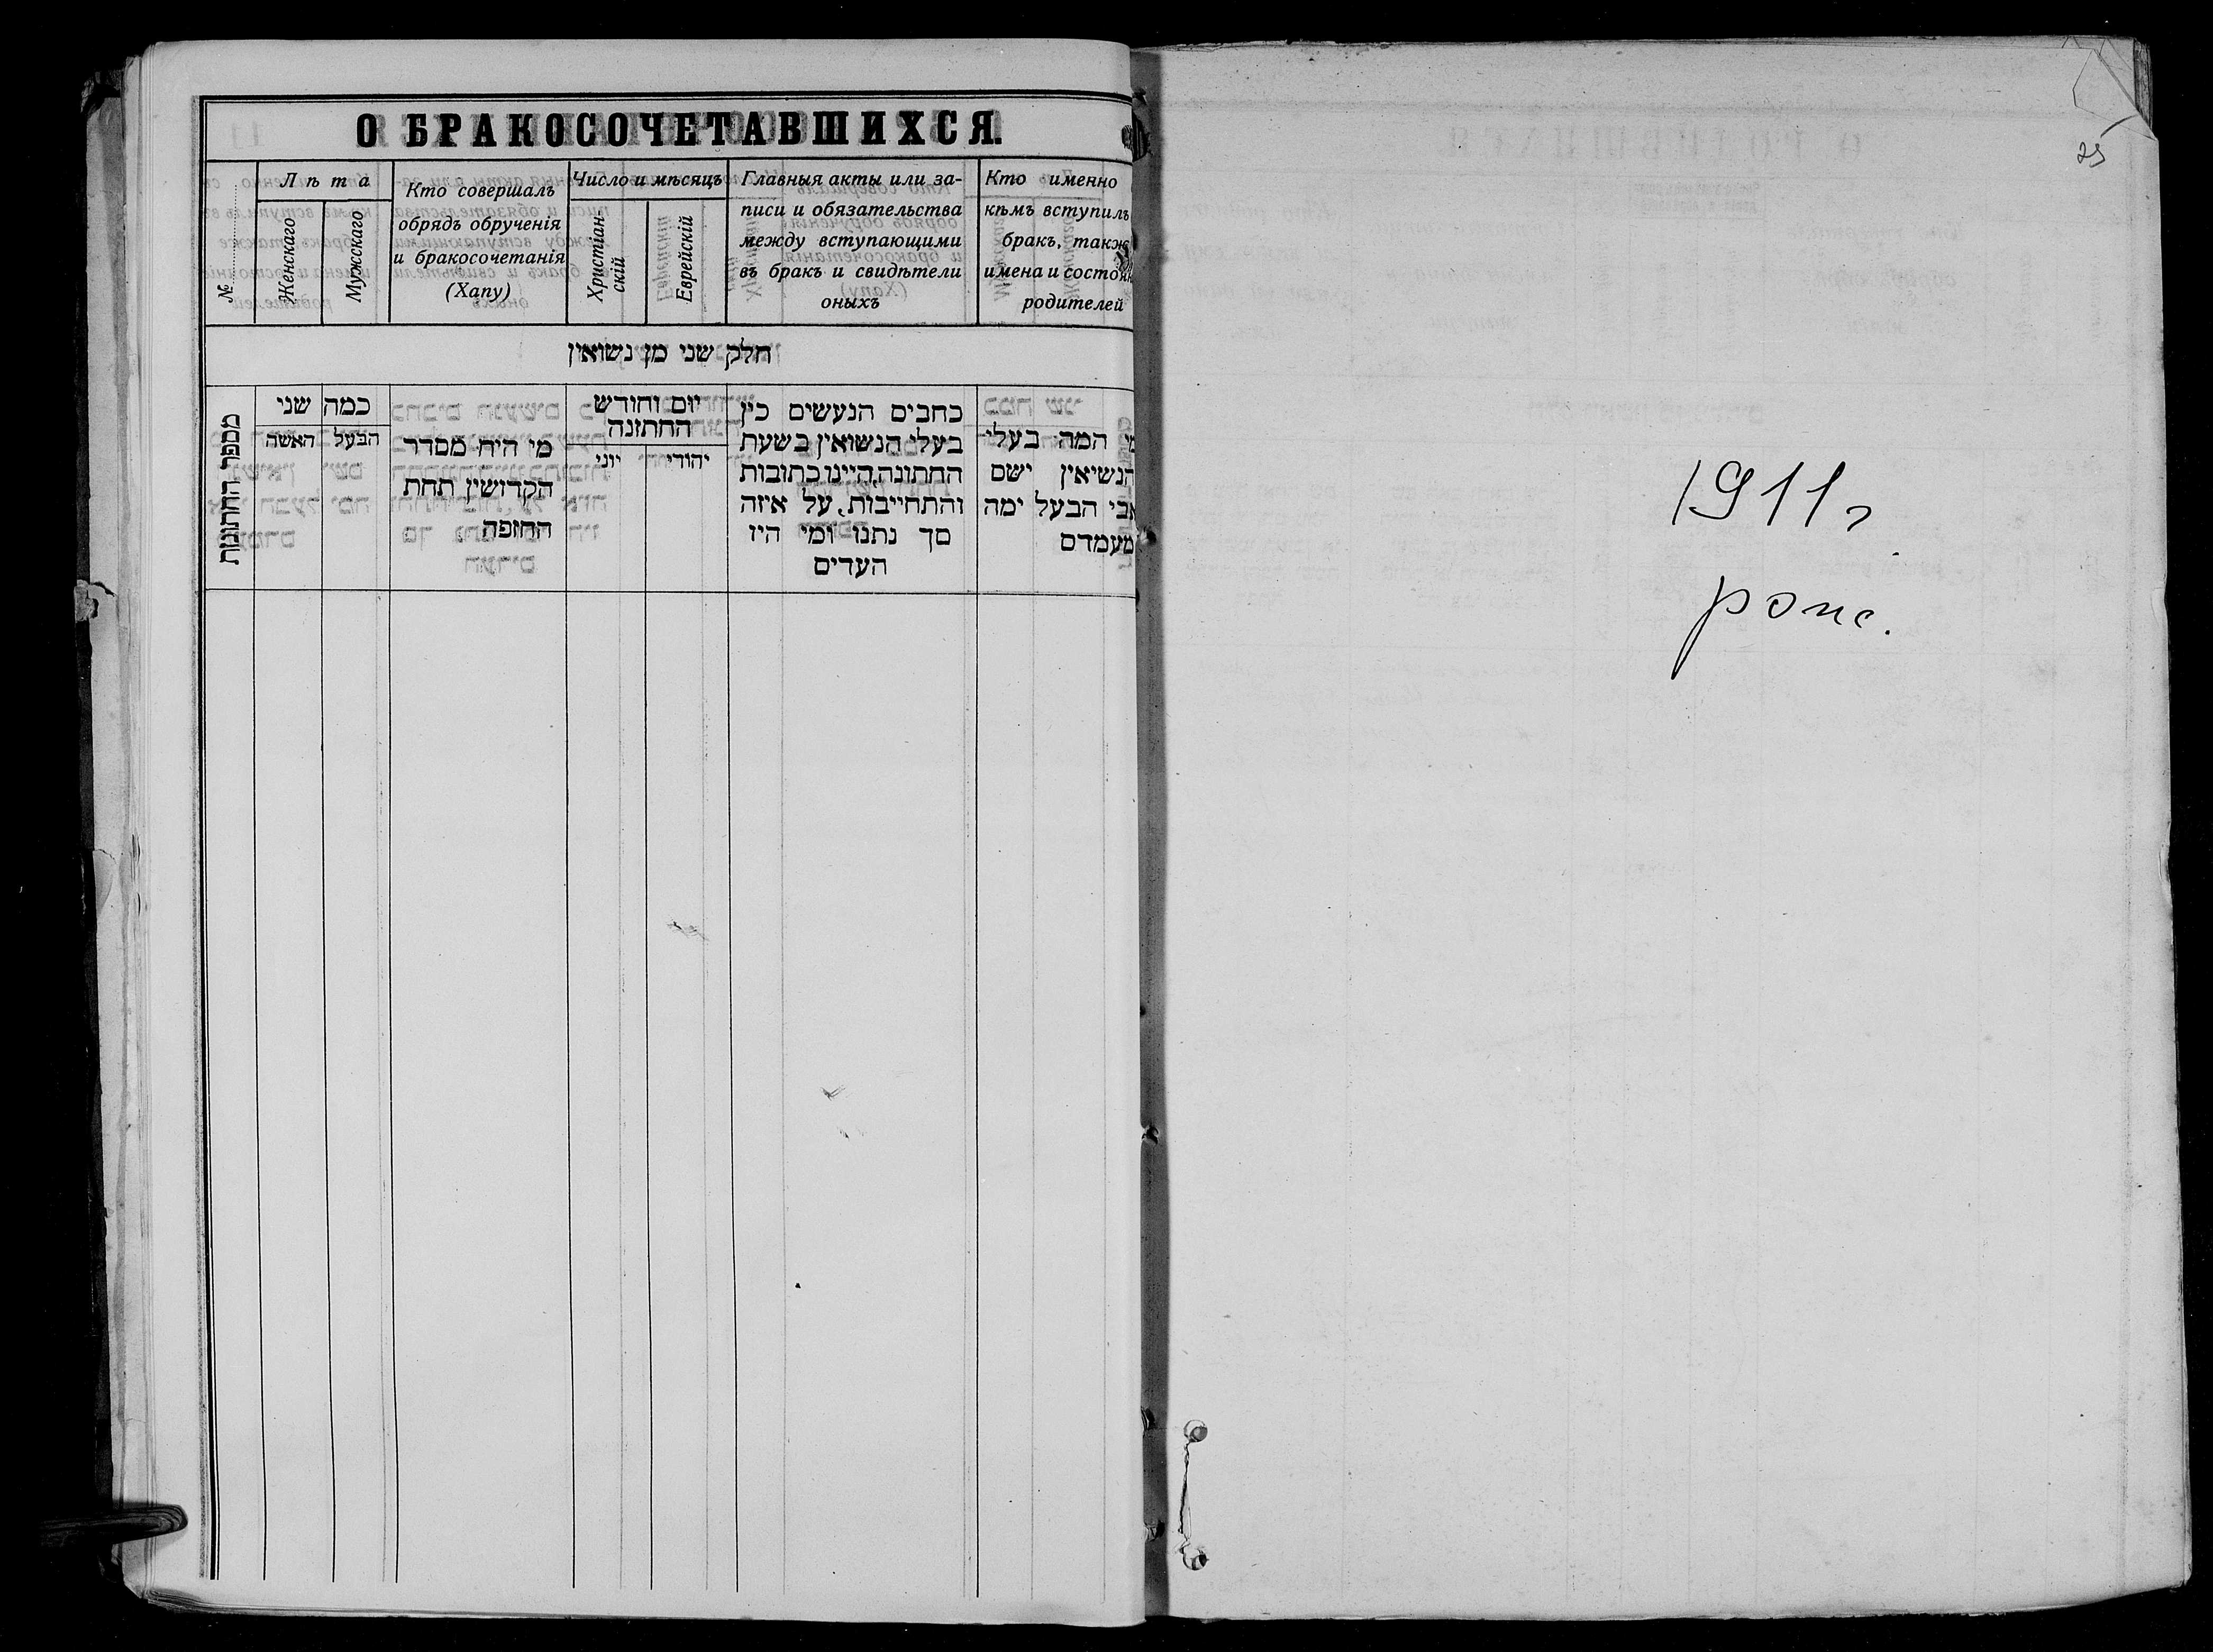 О БРАКОСОЧЕТАВШИХСЯ.
№
Лѣта
Женскаго
Мужскаго
Кто совершалъ
обрядъ обрученія
и бракосочетанія
(Хапу)
Число и мѣсяцъ
Христіан-
скій
Еврейскій
Главныя акты или за-
писи и обязательства
между вступающими
въ бракъ и свидѣтели
оныхъ
Кто именно
кѣмъ вступилъ
бракъ, также
имена и состоян
родителей
חלק שני מן נשואין
מספר החתונות
כמה שני
האשה
הבעל
מי היה מסדר
הקדושין תחת
החופה
יום וחודש
החתונה
יוני
יהודי
כתבים הנעשים בין
בעלי הנשואין בשעת
החתונה, היינו כתובות
והתחייבות, על איזה
סך נתנו ומי היו
העדים
המה בעלי
הנשיאין ישם
אבי הבעל ימה
מעמדם
25
1911 г.
рожд.